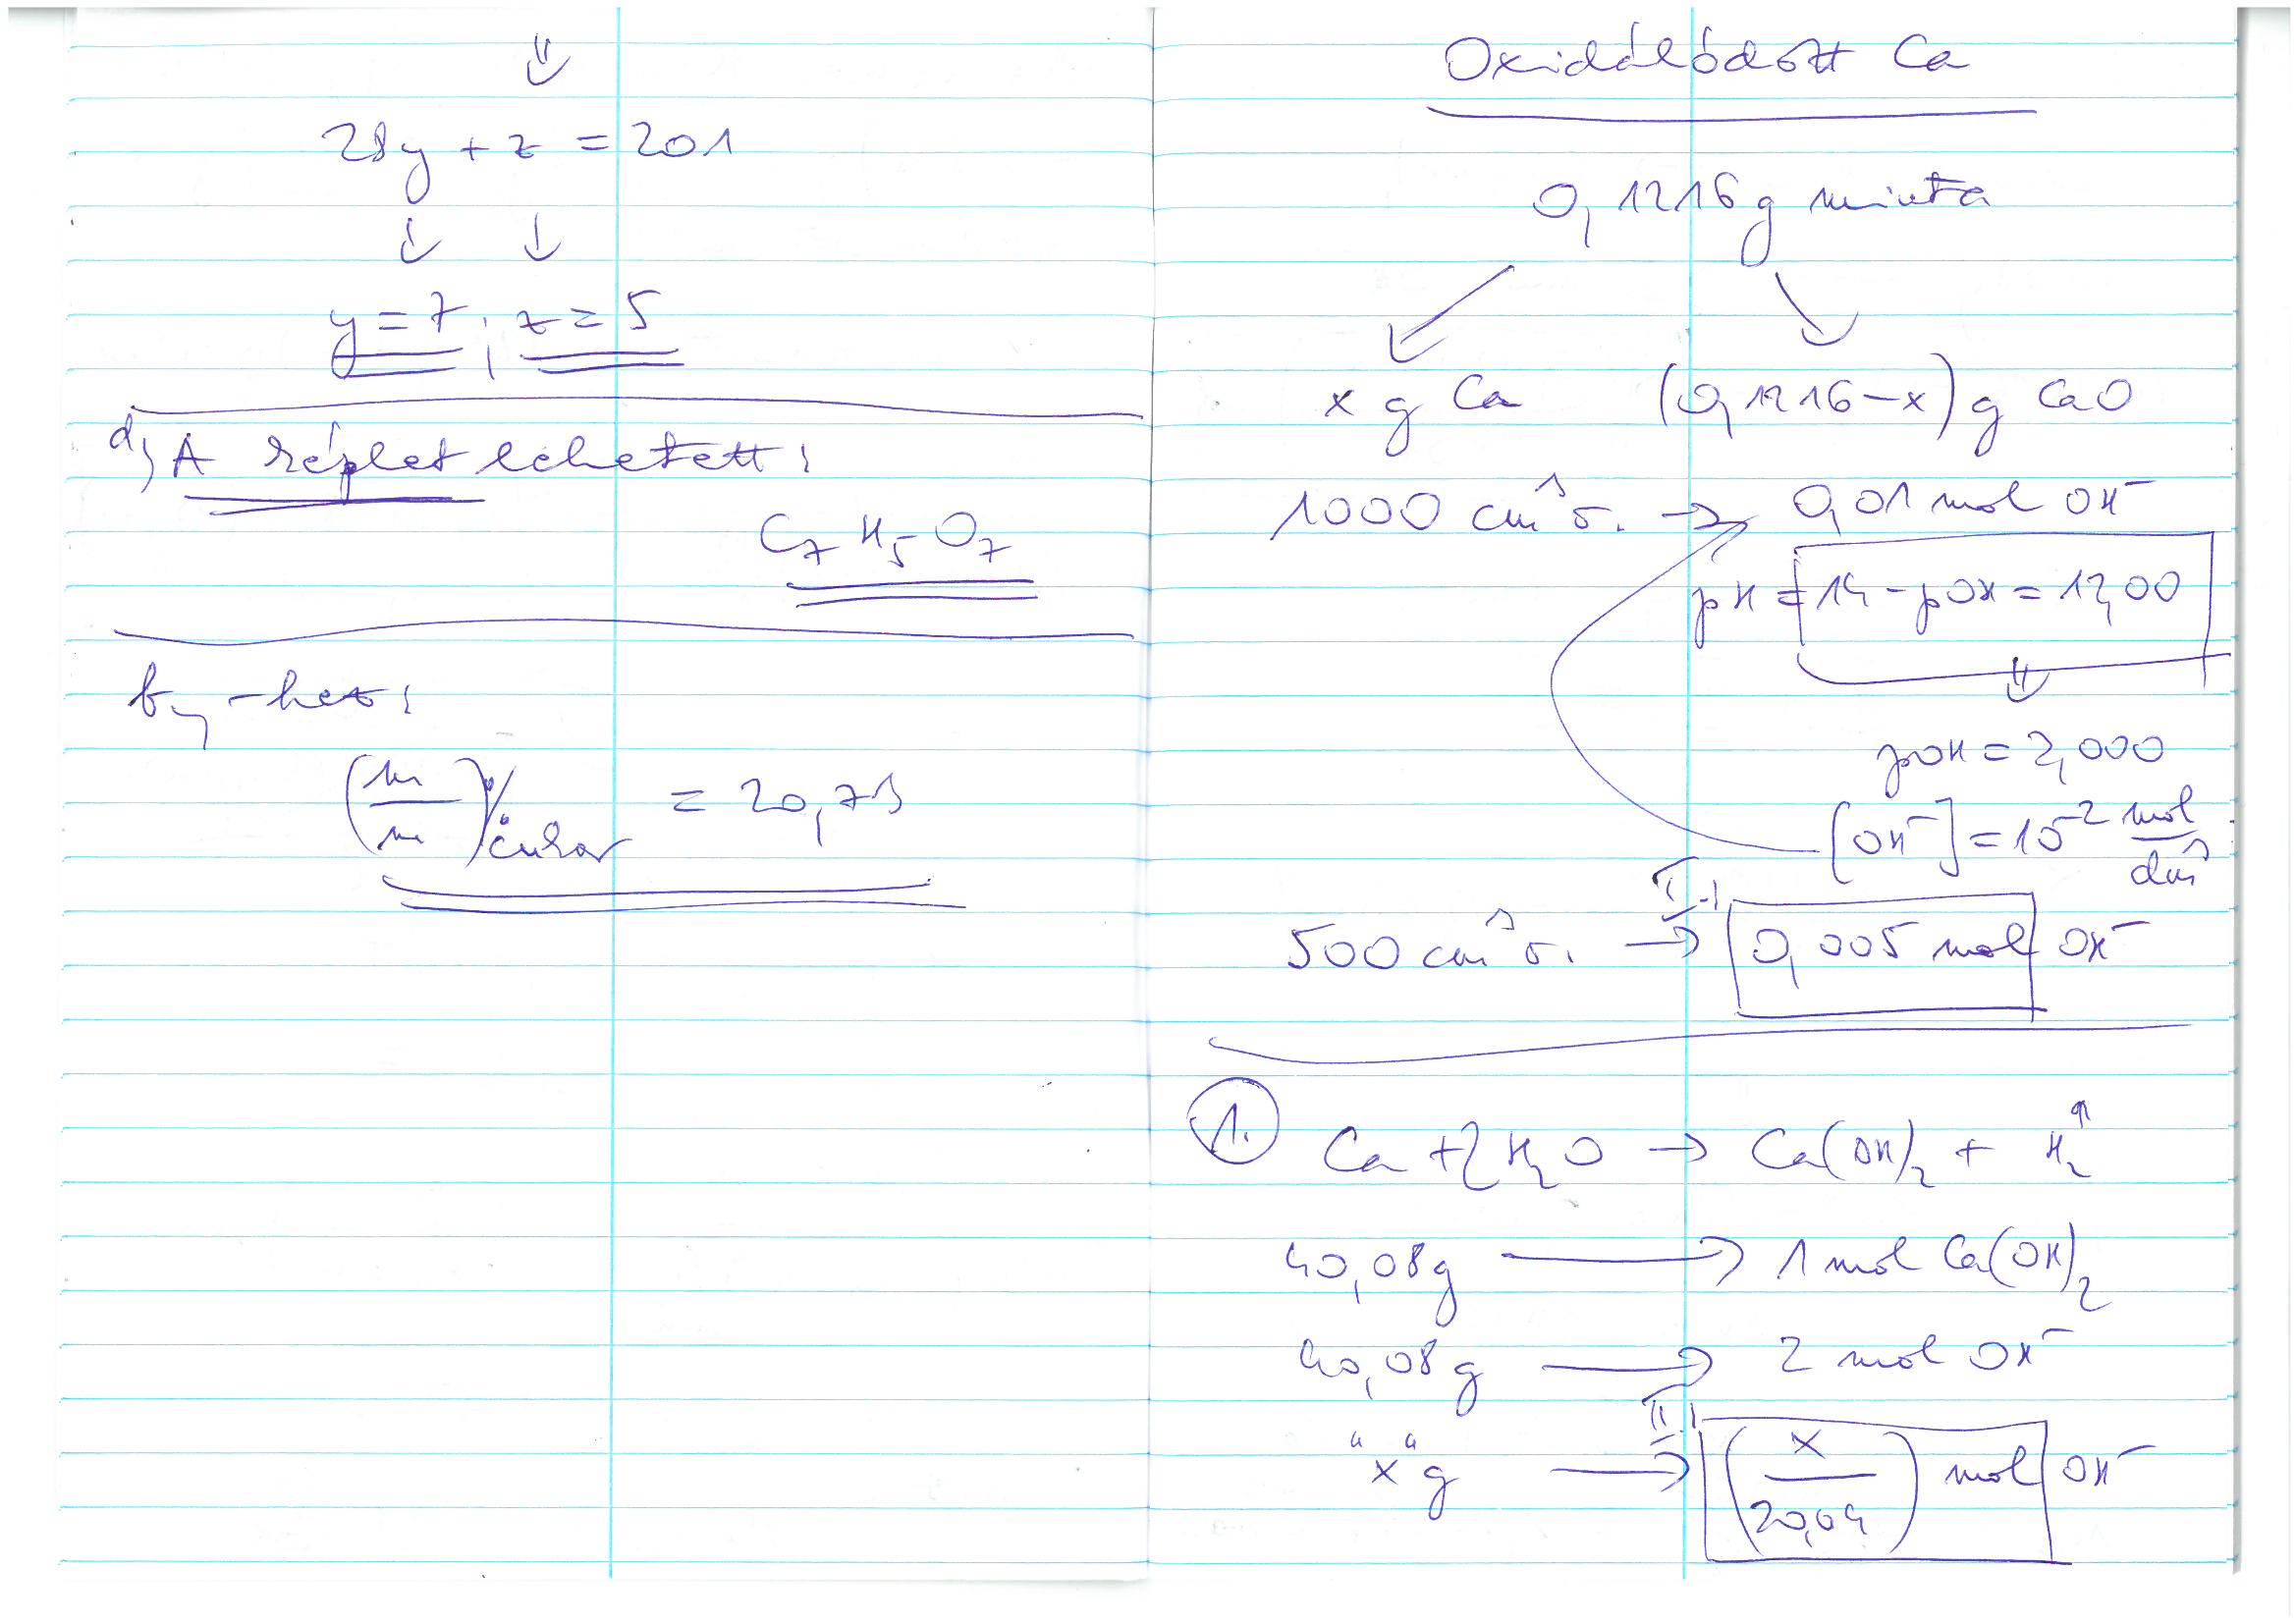 ⇓
28y + z = 201
↓ ↓
y = 7 ; z = 5
d, A képlet lehetett:
C₇H₅O₇
b, -hez:
(m/m)% cukor = 20,73
Oxidálódott Ca
0,1216 g minta
x g Ca (0,1216-x) g CaO
1000 cm³ o. → 0,01 mol OH⁻
pH = 14 - pOH = 12,00
⇓
pOH = 2,000
[OH⁻] = 10⁻² mol/dm³
500 cm³ o. → 0,005 mol OH⁻
1. Ca + 2H₂O → Ca(OH)₂ + H₂↑
40,08 g → 1 mol Ca(OH)₂
40,08 g → 2 mol OH⁻
"x" g → (x/20,04) mol OH⁻